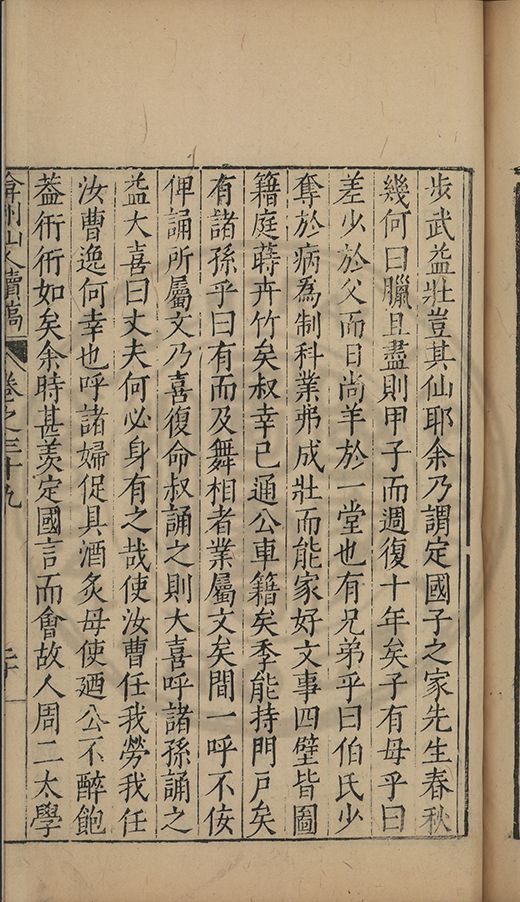 步武益壯豈其仙耶余乃謂定國子之家先生春秋
幾何曰臘且盡則甲子而週復十年矣子有母乎曰
差少於父而日尚羊於一堂也有兄弟乎曰伯氏少
奪於病為制科業弗成壯而能家好文事四壁皆圖
籍庭蒔卉竹矣叔幸已通公車籍矣季能持門戸矣
有諸孫乎曰有而及舞相者業屬文矣間一呼不佞
俾誦所屬文乃喜復命叔誦之則大喜呼諸孫誦之
益大喜曰丈夫何必身有之哉使汝曹任我勞我任
汝曹逸何幸也呼諸婦促具酒炙母使廼公不醉飽
葢衎衎如矣余時甚羨定國言而會故人周二太學
弇州山人續稿 卷之三十九 二十